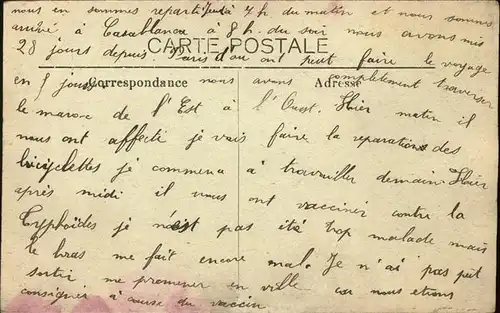 nous en sommes reparti Jeudi 7 h. du matin et nous sommes
arrivé à Casablanca à 8 h. du soir nous avons mis
CARTE POSTALE
28 jours depuis Paris d'ou ont peut faire le voyage
Correspondance
Adresse
en 5 jours. nous avons complètement traverser
le maroc de l'Est à l'Ouest. Hier matin il
nous ont affecti je vais faire la reparations des
bicyclettes je commence à travailler demain. Hier
après midi il nous ont vacciner contre la
Typhoïdes je n'est pas été trop malade mais
le bras me fait encore mal. Je n'ai pas peut
sortir me promener en ville car nous etions
consigner à cause du vaccin